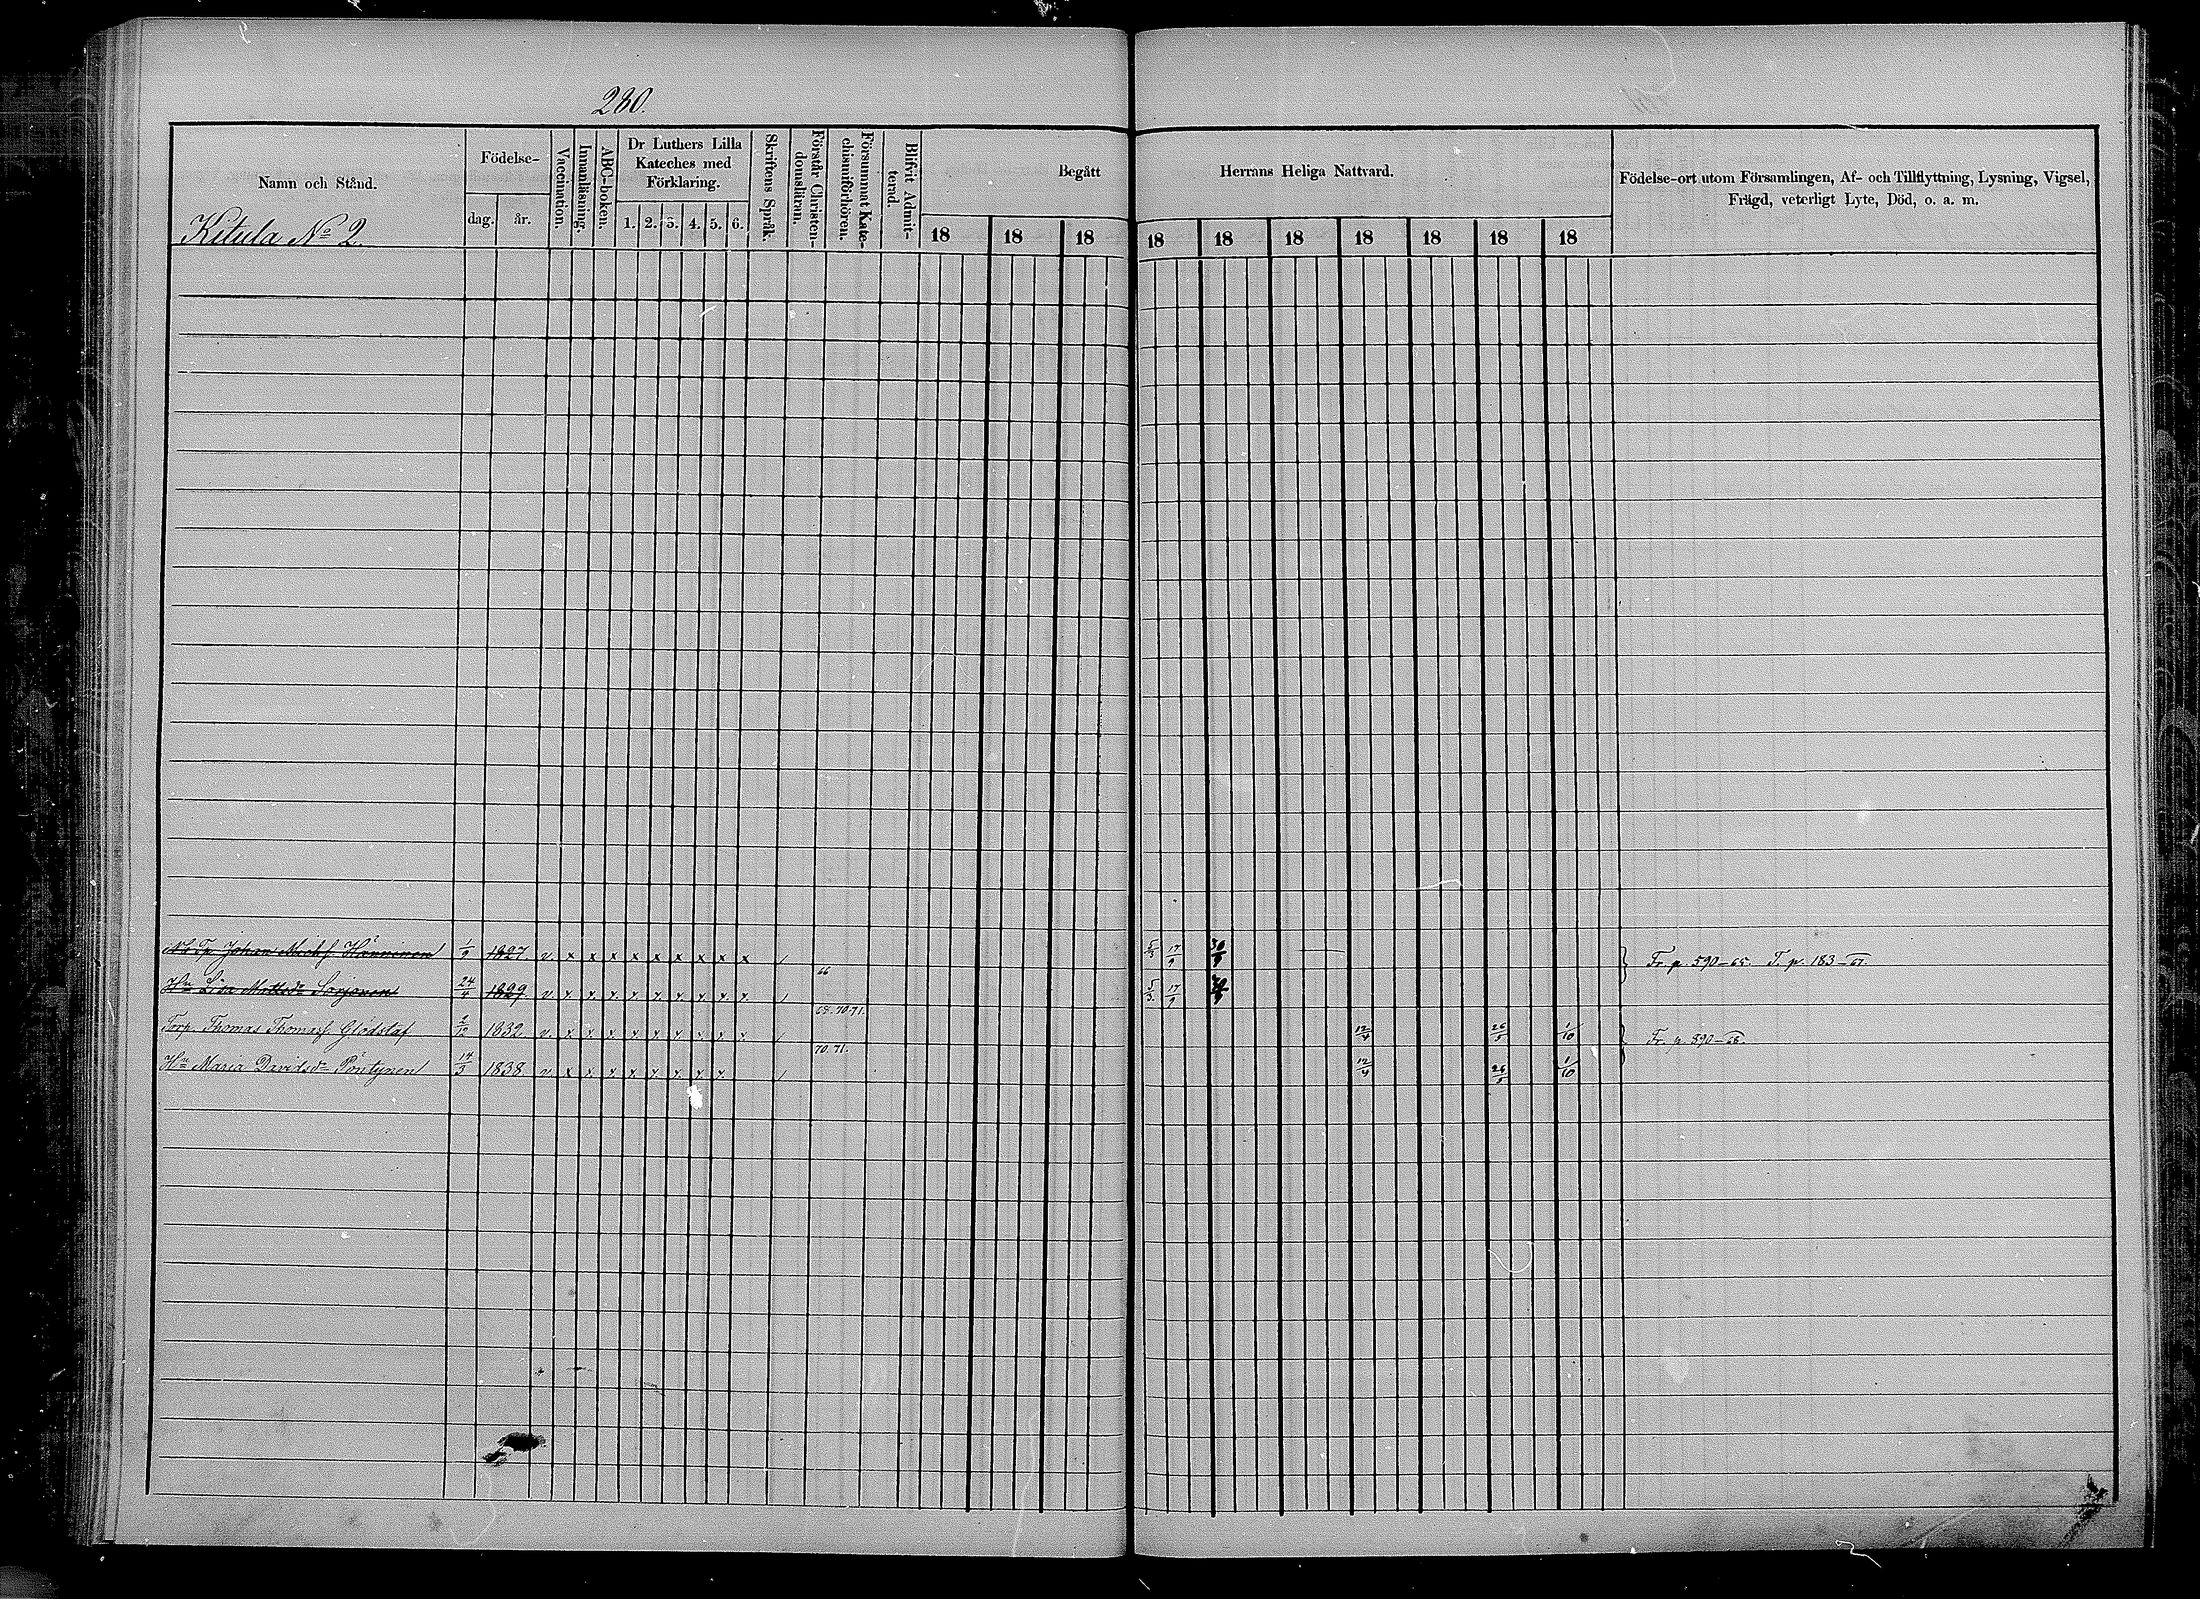 280.
Namn och Stånd.
Kitula No 2.
Födelse-
dag. år.
Vaccination.
Innanläsning.
ABC-boken.
Dr Luthers Lilla
Kateches med
Förklaring.
1. 2. 3. 4. 5. 6.
Skriftens Språk.
Förstår Christen-
domsläran.
Försummat Kate-
chismiförhören.
Blifvit Admit-
terad.
Begått Herrans Heliga Nattvard.
18 18 18 18 18 18 18 18 18 18
Födelse-ort utom Församlingen, Af- och Tillflyttning, Lysning, Vigsel,
Frägd, veterligt Lyte, Död, o. a. m.
Johan Michs Hänninen 1/9 1827 v. x x x x x x x x x / 5/3 17/9 30/9 Fr. p. 590-65. T. p. 183-67.
66
Hu Lisa Mattsdr Sorjonen 24/4 1829 v. x x x x x x x x x / 5/3 17/9 30/9
68. 70. 71.
Torp. Thomas Thomass Glödstaf 2/12 1832 v. x x x x x x x x x / 12/4 26/5 1/10 Fr. p. 590-68.
70. 71.
Hu Maria Davidsdr Pöntynen 14/3 1838 v x x x x x x x x / 12/4 26/5 1/10